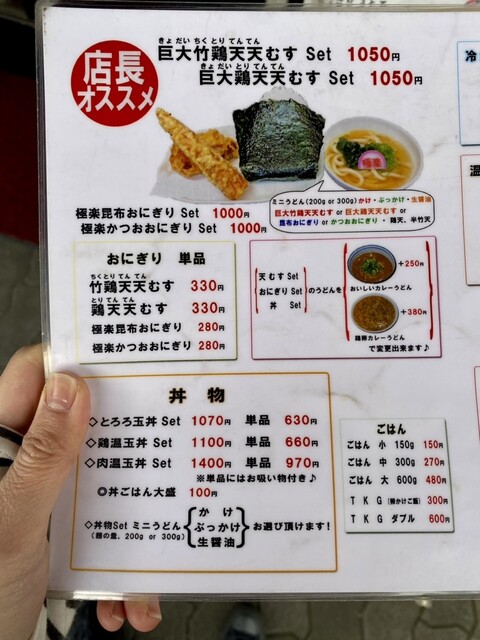 店長
オススメ
きょ だい ちく とり てん てん
巨大竹鶏天天むす Set 1050円
きょ だい とり てん てん
巨大鶏天天むす Set 1050円
極楽
極楽昆布おにぎり Set 1000円
極楽かつおおにぎり Set 1000円
ミニうどん(200g or 300g)かけ・ぶっかけ・生醤油
巨大竹鶏天天むす or 巨大鶏天天むす or
昆布おにぎり or かつおおにぎり・ 鶏天、半竹天
おにぎり 単品
ちくとり てん てん
竹鶏天天むす 330円
とり てん てん
鶏天天むす 330円
極楽昆布おにぎり 280円
極楽かつおおにぎり 280円
天むす Set
おにぎり Set
丼 Set
のうどんを
+250円
おいしいカレーうどん
+380円
鶏卵カレーうどん
で変更出来ます♪
丼 物
◇とろろ玉丼 Set 1070円 単品 630円
◇鶏温玉丼 Set 1100円 単品 660円
◇肉温玉丼 Set 1400円 単品 970円
※単品にはお吸い物付き♪
◎丼ごはん大盛 100円
◇丼物Set ミニうどん
(麺の量、200g or 300g)
か け
ぶっかけ
生醤油
お選び頂けます!
ごはん
ごはん 小 150g 150円
ごはん 中 300g 270円
ごはん 大 600g 480円
T K G (卵かけご飯) 300円
T K G ダブル 600円
冷
温